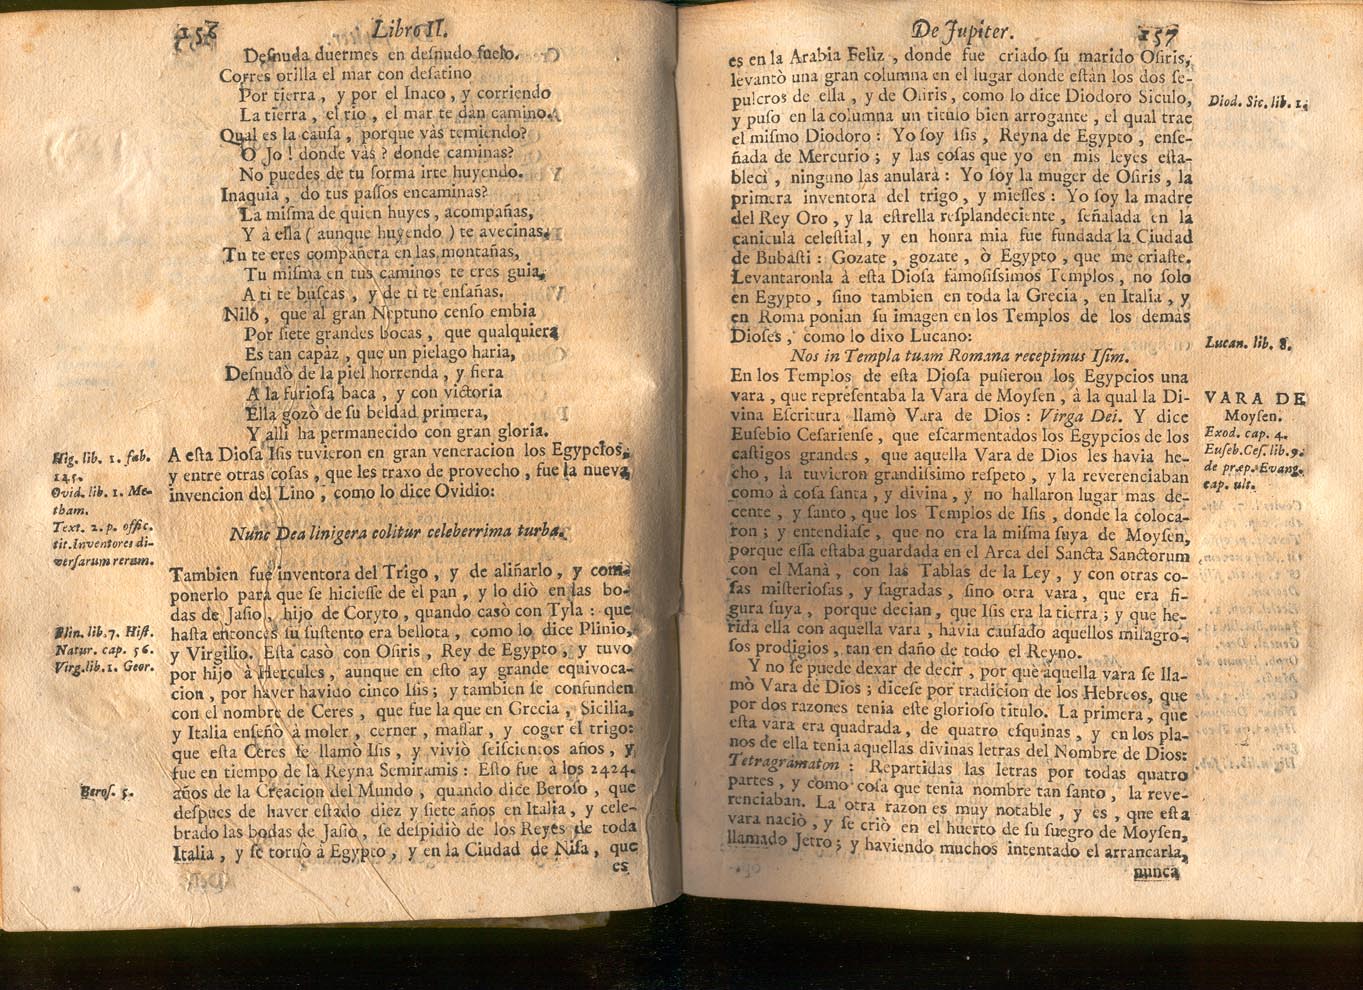 Libro II.
Desnuda duermes en desnudo suelo.
Corres orilla el mar con desatino
Por tierra, y por el Inaco, y corriendo
La tierra, el rio, el mar te dan camino.
Qual es la causa, porque vàs temiendo?
O Jo! donde vàs? donde caminas?
No puedes de tu forma irte huyendo.
Inaquia, do tus passos encaminas?
La misma de quien huyes, acompañas,
Y à ella (aunque huyendo) te avecinas.
Tu te eres compañera en las montañas,
Tu misma en tus caminos te eres guia,
A ti te buscas, y de ti te ensañas.
Nilo, que al gran Neptuno censo embia
Por siete grandes bocas, que qualquiera
Es tan capàz, que un pielago haria,
Desnudò de la piel horrenda, y fiera
A la furiosa baca, y con victoria
Ella gozò de su beldad primera,
Y alli ha permanecido con gran gloria.
A esta Diosa Isis tuvieron en gran veneracion los Egypcios,
y entre otras cosas, que les traxo de provecho, fue la nueva
invencion del Lino, como lo dice Ovidio:
Nunc Dea linigera colitur celeberrima turba.
Tambien fue inventora del Trigo, y de aliñarlo, y com-
ponerlo para que se hiciesse de el pan, y lo diò en las bo-
das de Jasio, hijo de Coryto, quando casò con Tyla: que
hasta entonces su sustento era bellota, como lo dice Plinio,
y Virgilio. Esta casò con Osiris, Rey de Egypto, y tuvo
por hijo à Hercules, aunque en esto ay grande equivoca-
cion, por haver havido cinco Isis; y tambien se confunden
con el nombre de Ceres, que fue la que en Grecia, Sicilia,
y Italia enseñò à moler, cerner, massar, y coger el trigo:
que esta Ceres se llamò Isis, y viviò seiscientos años, y
fue en tiempo de la Reyna Semiramis: Esto fue à los 2424.
años de la Creacion del Mundo, quando dice Beroso, que
despues de haver estado diez y siete años en Italia, y cele-
brado las bodas de Jasio, se despidiò de los Reyes de toda
Italia, y se tornò à Egypto, y en la Ciudad de Nisa, que
es
Hig. lib. 1. fab.
145.
Ovid. lib. 1. Me-
tham.
Text. 2. p. offic.
tit. Inventores di-
versarum rerum.
Plin. lib. 7. Hist.
Natur. cap. 56.
Virg. lib. 1. Geor.
Beros. 5.
De Jupiter.
257
es en la Arabia Felìz, donde fue criado su marido Osiris,
levantò una gran columna en el lugar donde estàn los dos se-
pulcros de ella, y de Osiris, como lo dice Diodoro Siculo,
y puso en la columna un titulo bien arrogante, el qual trae
el mismo Diodoro: Yo soy Isis, Reyna de Egypto, ense-
ñada de Mercurio; y las cosas que yo en mis leyes esta-
bleci, ninguno las anularà: Yo soy la muger de Osiris, la
primera inventora del trigo, y miesses: Yo soy la madre
del Rey Oro, y la estrella resplandeciente, señalada en la
canicula celestial, y en honra mia fue fundada la Ciudad
de Bubasti: Gozate, gozate, ò Egypto, que me criaste.
Levantaronla à esta Diosa famosissimos Templos, no solo
en Egypto, sino tambien en toda la Grecia, en Italia, y
en Roma ponian su imagen en los Templos de los demàs
Dioses, como lo dixo Lucano:
Nos in Templa tuam Romana recepimus Isim.
En los Templos de esta Diosa pusieron los Egypcios una
vara, que representaba la Vara de Moysen, à la qual la Di-
vina Escritura llamò Vara de Dios: Virga Dei. Y dice
Eusebio Cesariense, que escarmentados los Egypcios de los
castigos grandes, que aquella Vara de Dios les havia he-
cho, la tuvieron grandissimo respeto, y la reverenciaban
como à cosa santa, y divina, y no hallaron lugar mas de-
cente, y santo, que los Templos de Isis, donde la coloca-
ron; y entendiase, que no era la misma suya de Moysen,
porque essa estaba guardada en el Arca del Sancta Sanctorum
con el Manà, con las Tablas de la Ley, y con otras co-
sas misteriosas, y sagradas, sino otra vara, que era fi-
gura suya, porque decian, que Isis era la tierra; y que he-
rida ella con aquella vara, havia causado aquellos milagro-
sos prodigios, tan en daño de todo el Reyno.
Y no se puede dexar de decir, por què aquella vara se lla-
mò Vara de Dios; dicese por tradicion de los Hebreos, que
por dos razones tenia este glorioso titulo. La primera, que
esta vara era quadrada, de quatro esquinas, y en los pla-
nos de ella tenia aquellas divinas letras del Nombre de Dios:
Tetragramaton: Repartidas las letras por todas quatro
partes, y como cosa que tenia nombre tan santo, la reve-
renciaban. La otra razon es muy notable, y es, que esta
vara naciò, y se criò en el huerto de su suegro de Moysen,
llamado Jetro; y haviendo muchos intentado el arrancarla,
nunca
Diod. Sic. lib. 1.
Lucan. lib. 8.
VARA DE
Moysen.
Exod. cap. 4.
Euseb. Ces. lib. 9.
de præp. Evang.
cap. ult.